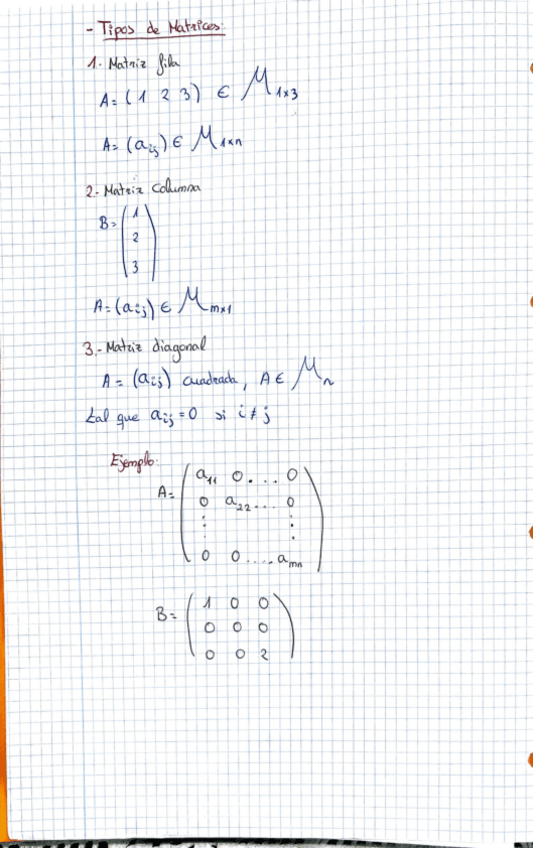 - Tipos de Matrices:
1.- Matriz fila
A = ( 1 2 3 ) ∈ M₁ₓ₃
A = (aᵢⱼ) ∈ M₁ₓₙ
2.- Matriz Columna
B = ( 1
2
3 )
A = (aᵢⱼ) ∈ Mₘₓ₁
3.- Matriz diagonal
A = (aᵢⱼ) cuadrada, A ∈ Mₙ
tal que aᵢⱼ = 0 si i ≠ j
Ejemplo:
A = ( a₁₁ 0 . . . . 0
0 a₂₂ . . . 0
⋮ ⋮
0 0 . . . . aₘₙ )
B = ( 1 0 0
0 0 0
0 0 2 )